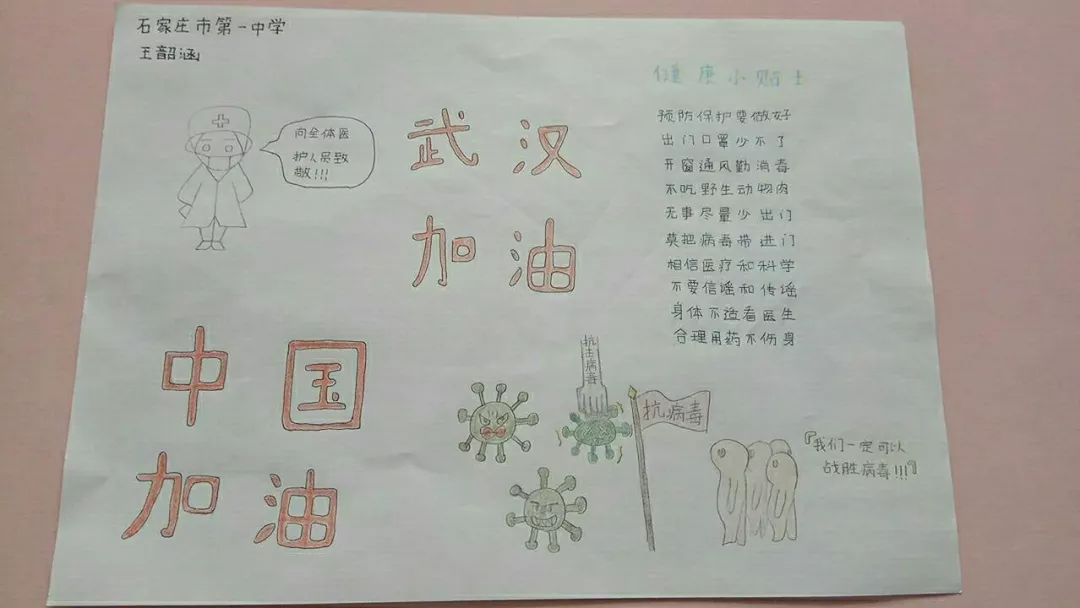 石家庄市第一中学
王韶涵
向全体医
护人员致
敬!!!
武汉
加油
中国
加油
健康小贴士
预防保护要做好
出门口罩少不了
开窗通风勤消毒
不吃野生动物肉
无事尽量少出门
莫把病毒带进门
相信医疗和科学
不要信谣和传谣
身体不适看医生
合理用药不伤身
抗击病毒
抗病毒
『我们一定可以
战胜病毒!!!』